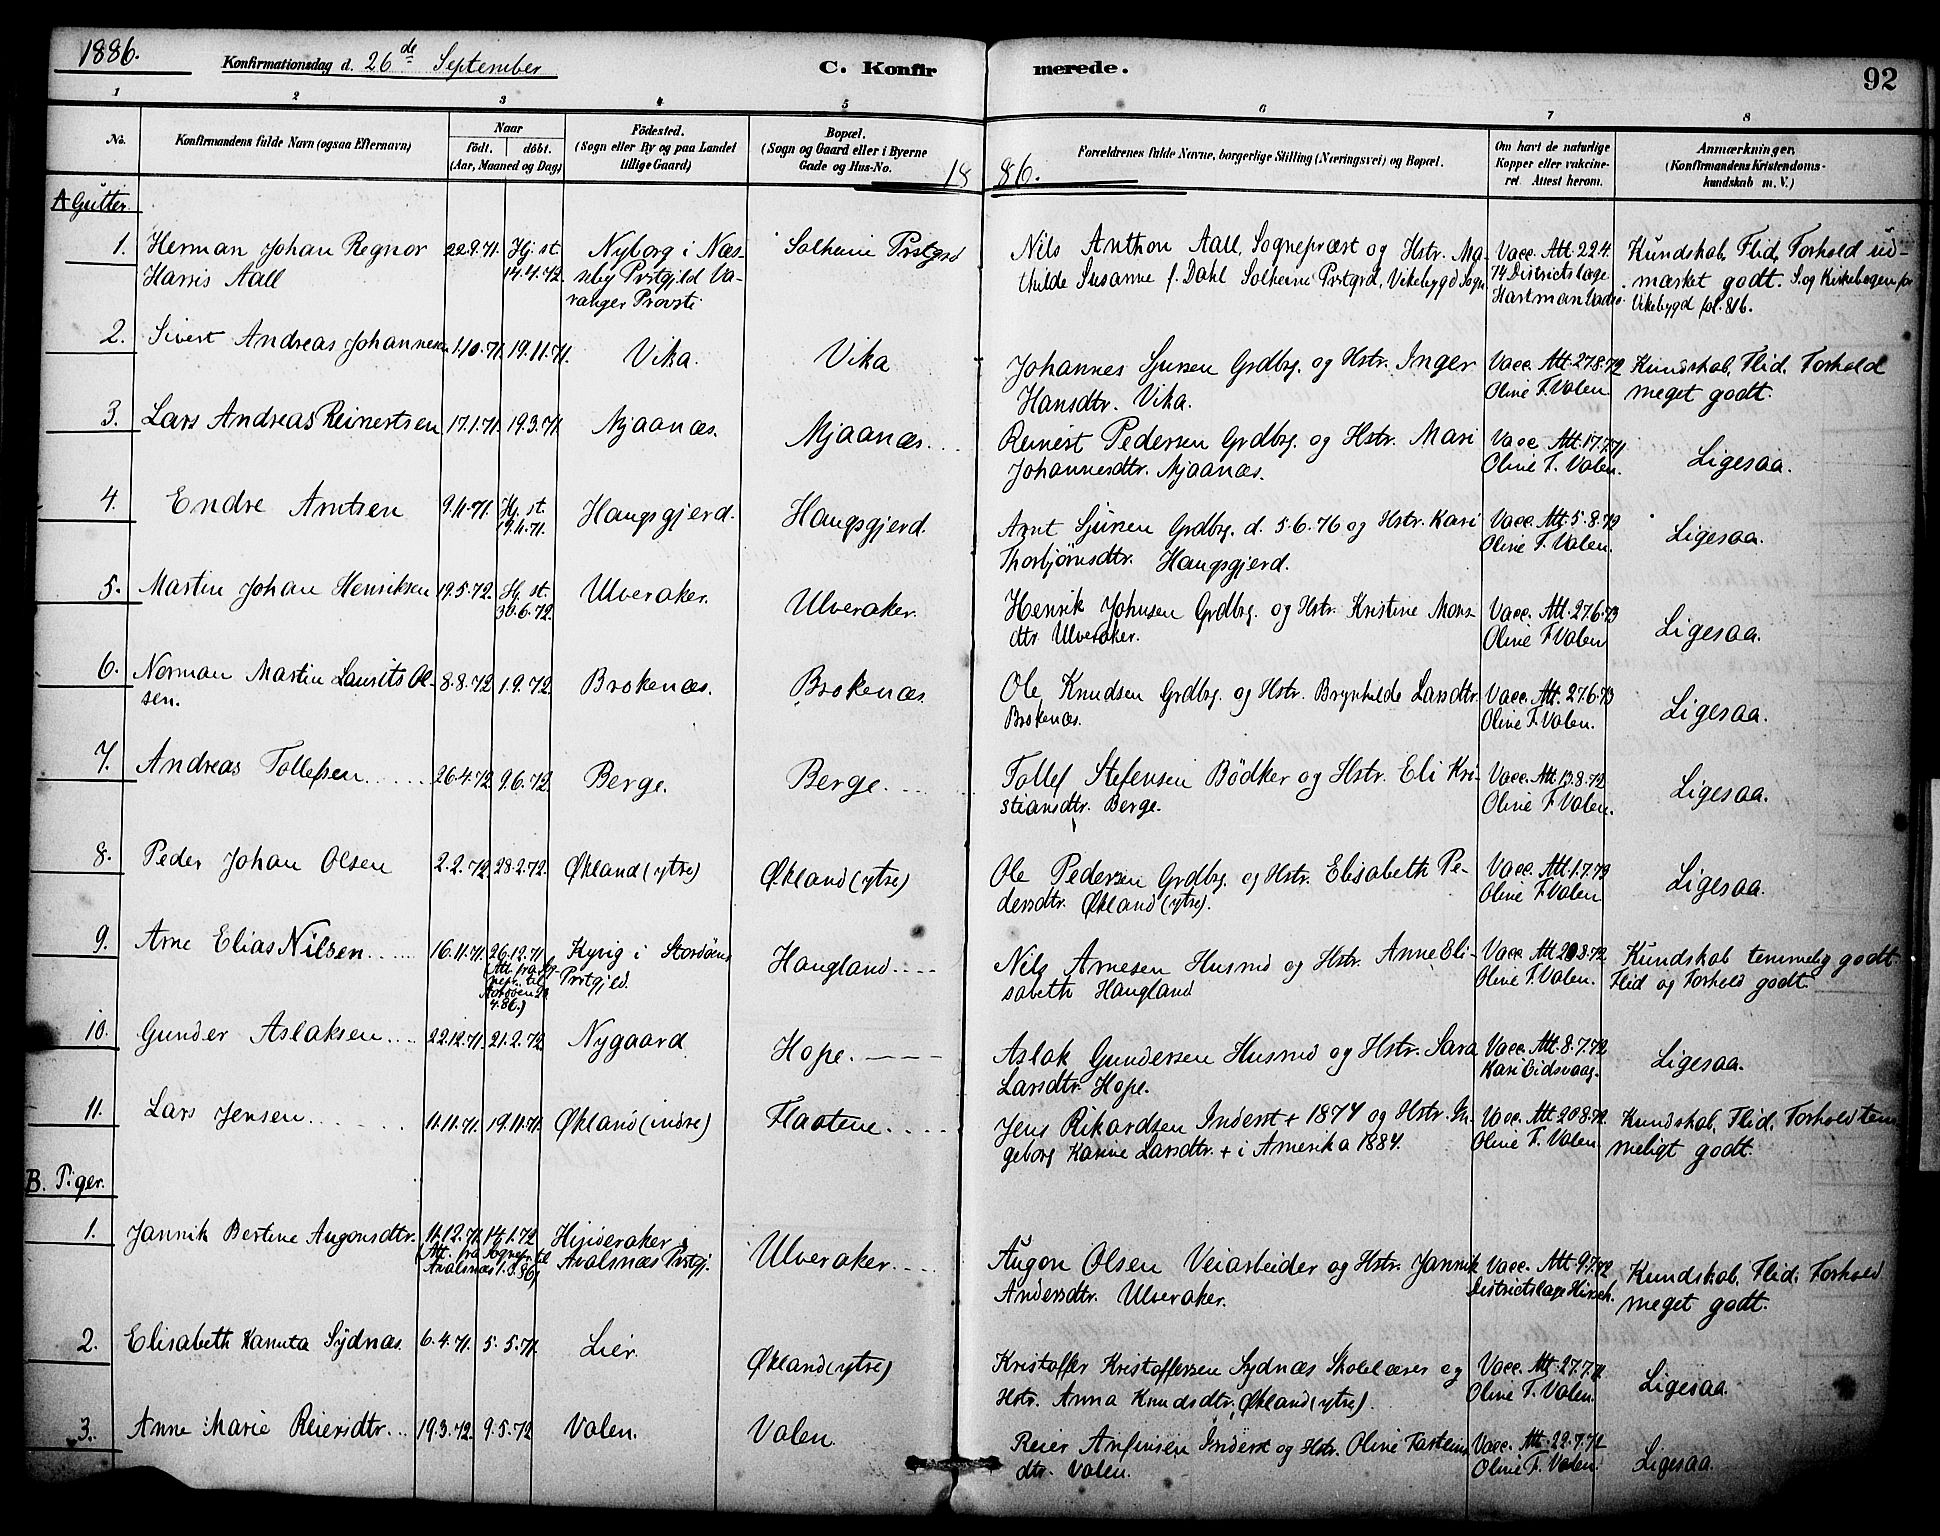 1886.
Konfirmationsdag d. 26de September
C. Konfirmerede.
92
1 2 3 4 5 6 7 8
No.
Konfirmandens fulde Navn (ogsaa Efternavn)
Naar
født. døbt.
(Aar, Maaned og Dag)
Födested.
(Sogn eller By og paa Landet
tillige Gaard)
Bopæl.
(Sogn og Gaard eller i Byerne
Gade og Hus-No.
Forældrenes fulde Navne, borgerlige Stilling (Næringsvei) og Bopæl.
Om havt de naturlige
Kopper eller vakcine-
ret. Attest herom.
Anmærkninger.
(Konfirmandens Kristendoms-
kundskab m. V.)
1886.
A Gutter.
1. Herman Johan Regnor 22.9.71. Hj. st. Nyborg i Næs- Solheim Prstgrd Nils Anthon Aall, Sognepræst og Hstr. Ma- Vacc. Att. 22.4. Kundskab, Flid, Forhold ud-
Harris Aall 14.4.72. seby Prstgjld Va- thilde Susanne f. Dahl Solheim Prstgrd, Vikebygd Sogn 74 Districtslæge mærket godt. S. og Kirkebogen for
ranger Provsti Hartman Vadsø. Vikebygd fol. 816.
2. Sivert Andreas Johannesen 1.10.71. 19.11.71. Vika. Vika Johannes Sjursen Grdbrg. og Hstr. Inger Vacc. Att. 27.8.72 Kundskab, Flid, Forhold
Hansdtr. Vika. Oline T. Valen meget godt.
3. Lars Andreas Reinertsen 17.1.71. 19.3.71. Njaanæs. Njaanæs. Reinert Pedersen Grdbrg. og Hstr. Mari Vacc. Att. 17.7.71 Ligesaa.
Johannesdtr. Njaanæs. Oline T. Valen.
4. Endre Arntsen 9.11.71. Hj. st. Haugsgjerd. Haugsgjerd. Arnt Sjursen Grdbrg. d. 5.6.76 og Hstr. Kari Vacc. Att. 5.8.72 Ligesaa.
19.11.71. Thorbjörnsdtr. Haugsgjerd. Oline T. Valen.
5. Martin Johan Henriksen 19.5.72. Hj. st. Ulveraker. Ulveraker. Henrik Johnsen Grdbrg. og Hstr. Kristine Mons- Vacc. Att. 27.6.73 Ligesaa.
30.6.72. dtr. Ulveraker. Oline T. Valen
6. Norman Martin Laurits Ol- 8.8.72 1.9.72. Brokenæs. Brokenæs. Ole Knudsen Grdbrg. og Hstr. Brynhilde Larsdtr. Vacc. Att. 27.6.73 Ligesaa.
sen. Brokenæs. Oline T. Valen.
7. Andreas Tollefsen 26.4.72 9.6.72. Berge. Berge. Tollef Stefensen Bödker og Hstr. Eli Kri- Vacc. Att. 13.8.72 Ligesaa.
stiansdtr. Berge. Oline T. Valen.
8. Peder Johan Olsen 2.2.72 28.2.72. Økland (ytre) Økland (ytre) Ole Pedersen Grdbrg. og Hstr. Elisabeth Pe- Vacc. Att. 1.7.72 Ligesaa.
dersdtr. Økland (ytre). Oline T. Valen
9. Arne Elias Nilsen 16.11.71. 26.12.71. Kyvig i Stordöens Haugland Nils Arnesen Husmd og Hstr. Anne Eli- Vacc. Att. 20.8.72 Kundskab temmelig godt
(Att. fra Sg- Prstgjld. sabeth Haugland Oline T. Valen. Flid og Forhold godt.
nepr. til
4.86.)
10. Gunder Aslaksen 22.12.71. 21.2.72. Nygaard Hope. Aslak Gundersen Husmd og Hstr. Sara Vacc. Att. 8.7.72 Ligesaa.
Larsdtr. Hope. Kari Eidsvaag.
11. Lars Jensen 11.11.71. 19.11.71. Økland (indre) Flaatene. Jens Rikardsen Inderst + 1874 og Hstr. In- Vacc. Att. 20.8.72 Kundskab, Flid, Forhold tem-
geborg Karine Larsdtr. + i Amerika 1884. Oline T. Valen meligt godt.
B. Piger.
1. Jannik Bertine Augonsdtr. 11.12.71. 14.1.72 Hinderaker i Ulveraker. Augon Olsen Veiarbeider og Hstr. Jannik Vacc. Att. 9.7.72 Kundskab, Flid, Forhold
(Att. fra Sognepr. til Avalsnæs Prstgj. Andersdtr. Ulveraker. Districtslæge Hirsch. meget godt.
Avalsnæs 1.3.86)
2. Elisabeth Kanuta Sydnæs 6.4.71. 5.5.71. Lier. Økland (ytre) Kristoffer Kristoffersen Sydnæs Skolelærer og Vacc. Att. 27.7.71 Ligesaa.
Hstr. Anna Knudsdtr. Økland (ytre). Oline T. Valen.
3. Anne Marie Reiersdtr. 19.3.72. 9.5.72 Valen. Valen. Reier Anfinsen Inderst og Hstr. Oline Tarteins Vacc. Att. 22.7.72 Ligesaa.
dtr. Valen. Oline T. Valen.